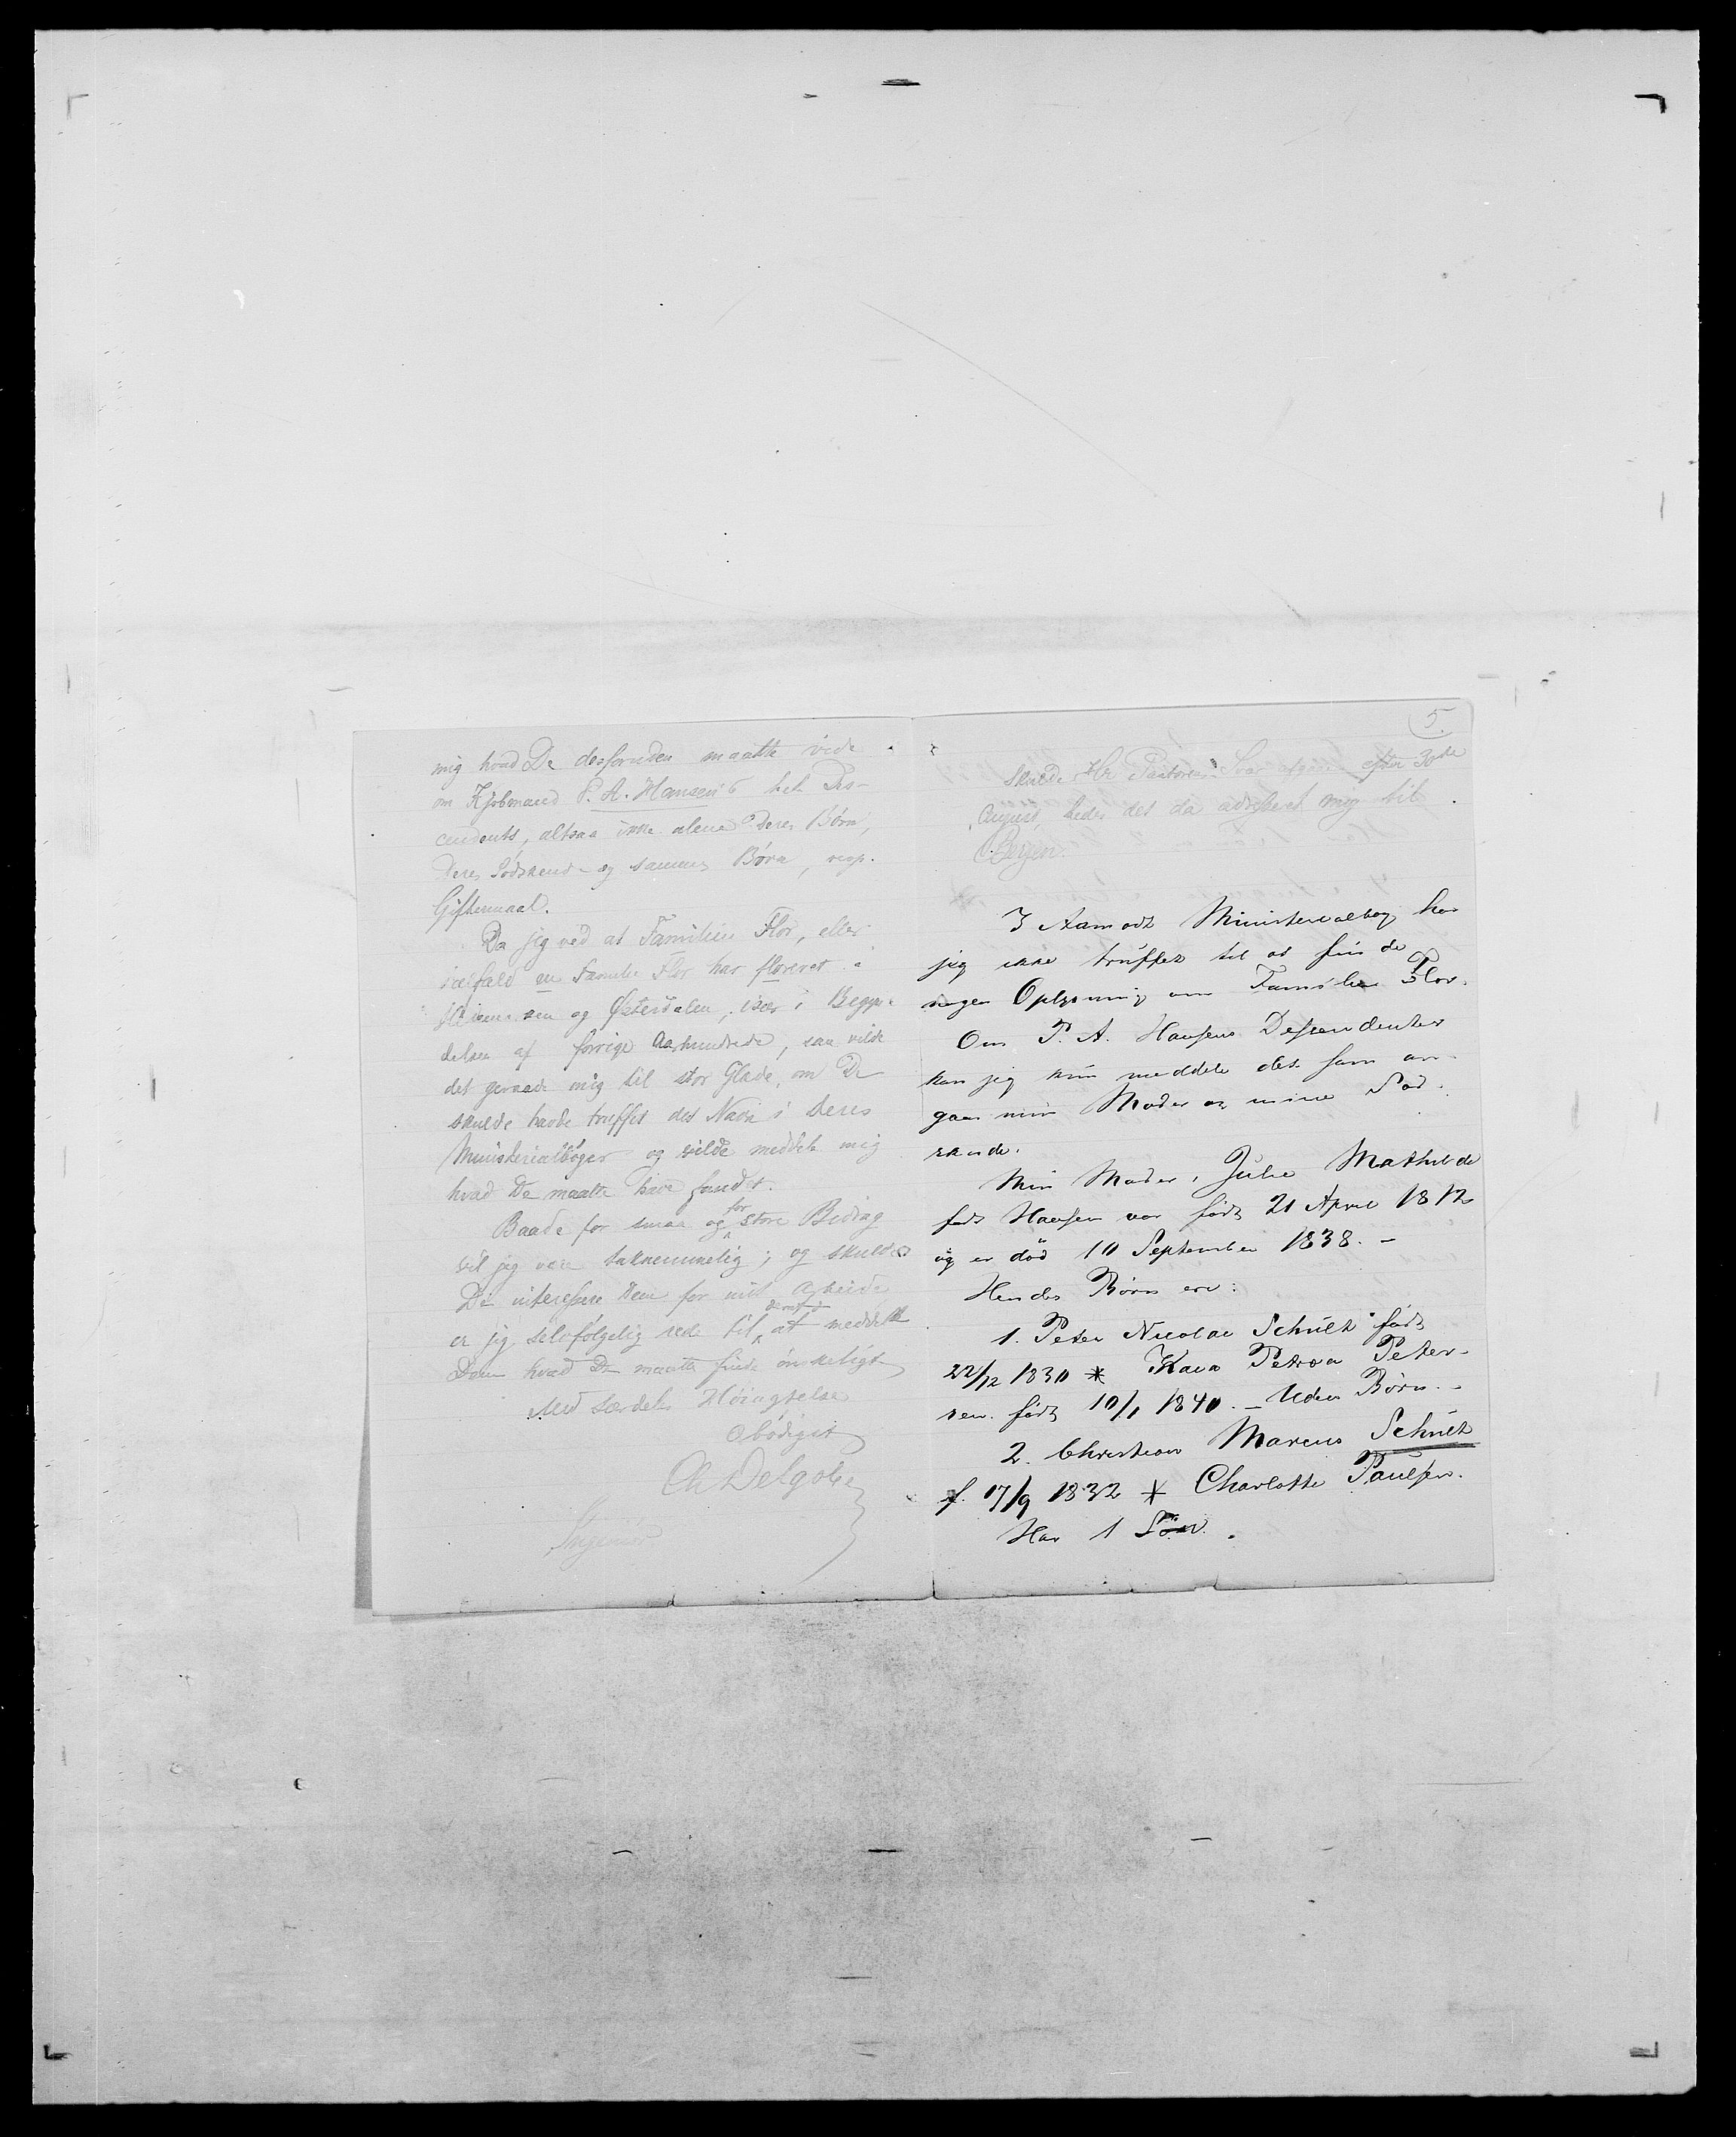 mig hvad De desforuden maatte vide
om Kjøbmand P. A. Hansen's hele Des-
cendents, altsaa ikke alene Deres Børn,
Deres Sødskend- og sammes Børn, resp.
Giftermaal.
Da jeg ved at Familien Flor, eller
ialfald en Familie Flor har floreret i
og Østerdalen, især i Begyn-
delsen af forrige Aarhundrede, saa vilde
det geraade mig til stor Glæde, om De
skulde havde truffet det Navn i Deres
Ministerialbøger og vilde meddele mig
hvad De maatte have fundet.
Baade for smaa og for store Bidrag
vil jeg være taknemmelig; og skulde
De interesere Dem for mit Arbeide
er jeg selvfølgelig rede til at meddele
Dem hvad De maatte finde ønskeligt
Med særdeles Høiagtelse
ærbødigst
Ch Delgobe
Ingeniør
5.
Skulde Hr Pastorens Svar afgaae efter 30te
August, bedes det da adressert mig til
Bergen.
I Aamodt Ministerialbog har
jeg ikke truffet til at finde
nogen Oplysning om Familien Flor.
Om P. A. Hansens Descendenter
kan jeg kun meddele det som an-
gaar min Moder og mine Sød-
skende.
Min Moder, Julie Mathilde
født Hansen var født 21 April 1812
og er død 10 September 1838. -
Hendes Børn ere:
1. Peter Nicolai Schültz født
22/12 1830 * Kaia Petrea Peter-
sen. født 10/1 1840. - Uden Børn. -
2. Christian Marcus Schültz
f. 17/9 1832 * Charlotte Paulsen.
Har 1 Søn.